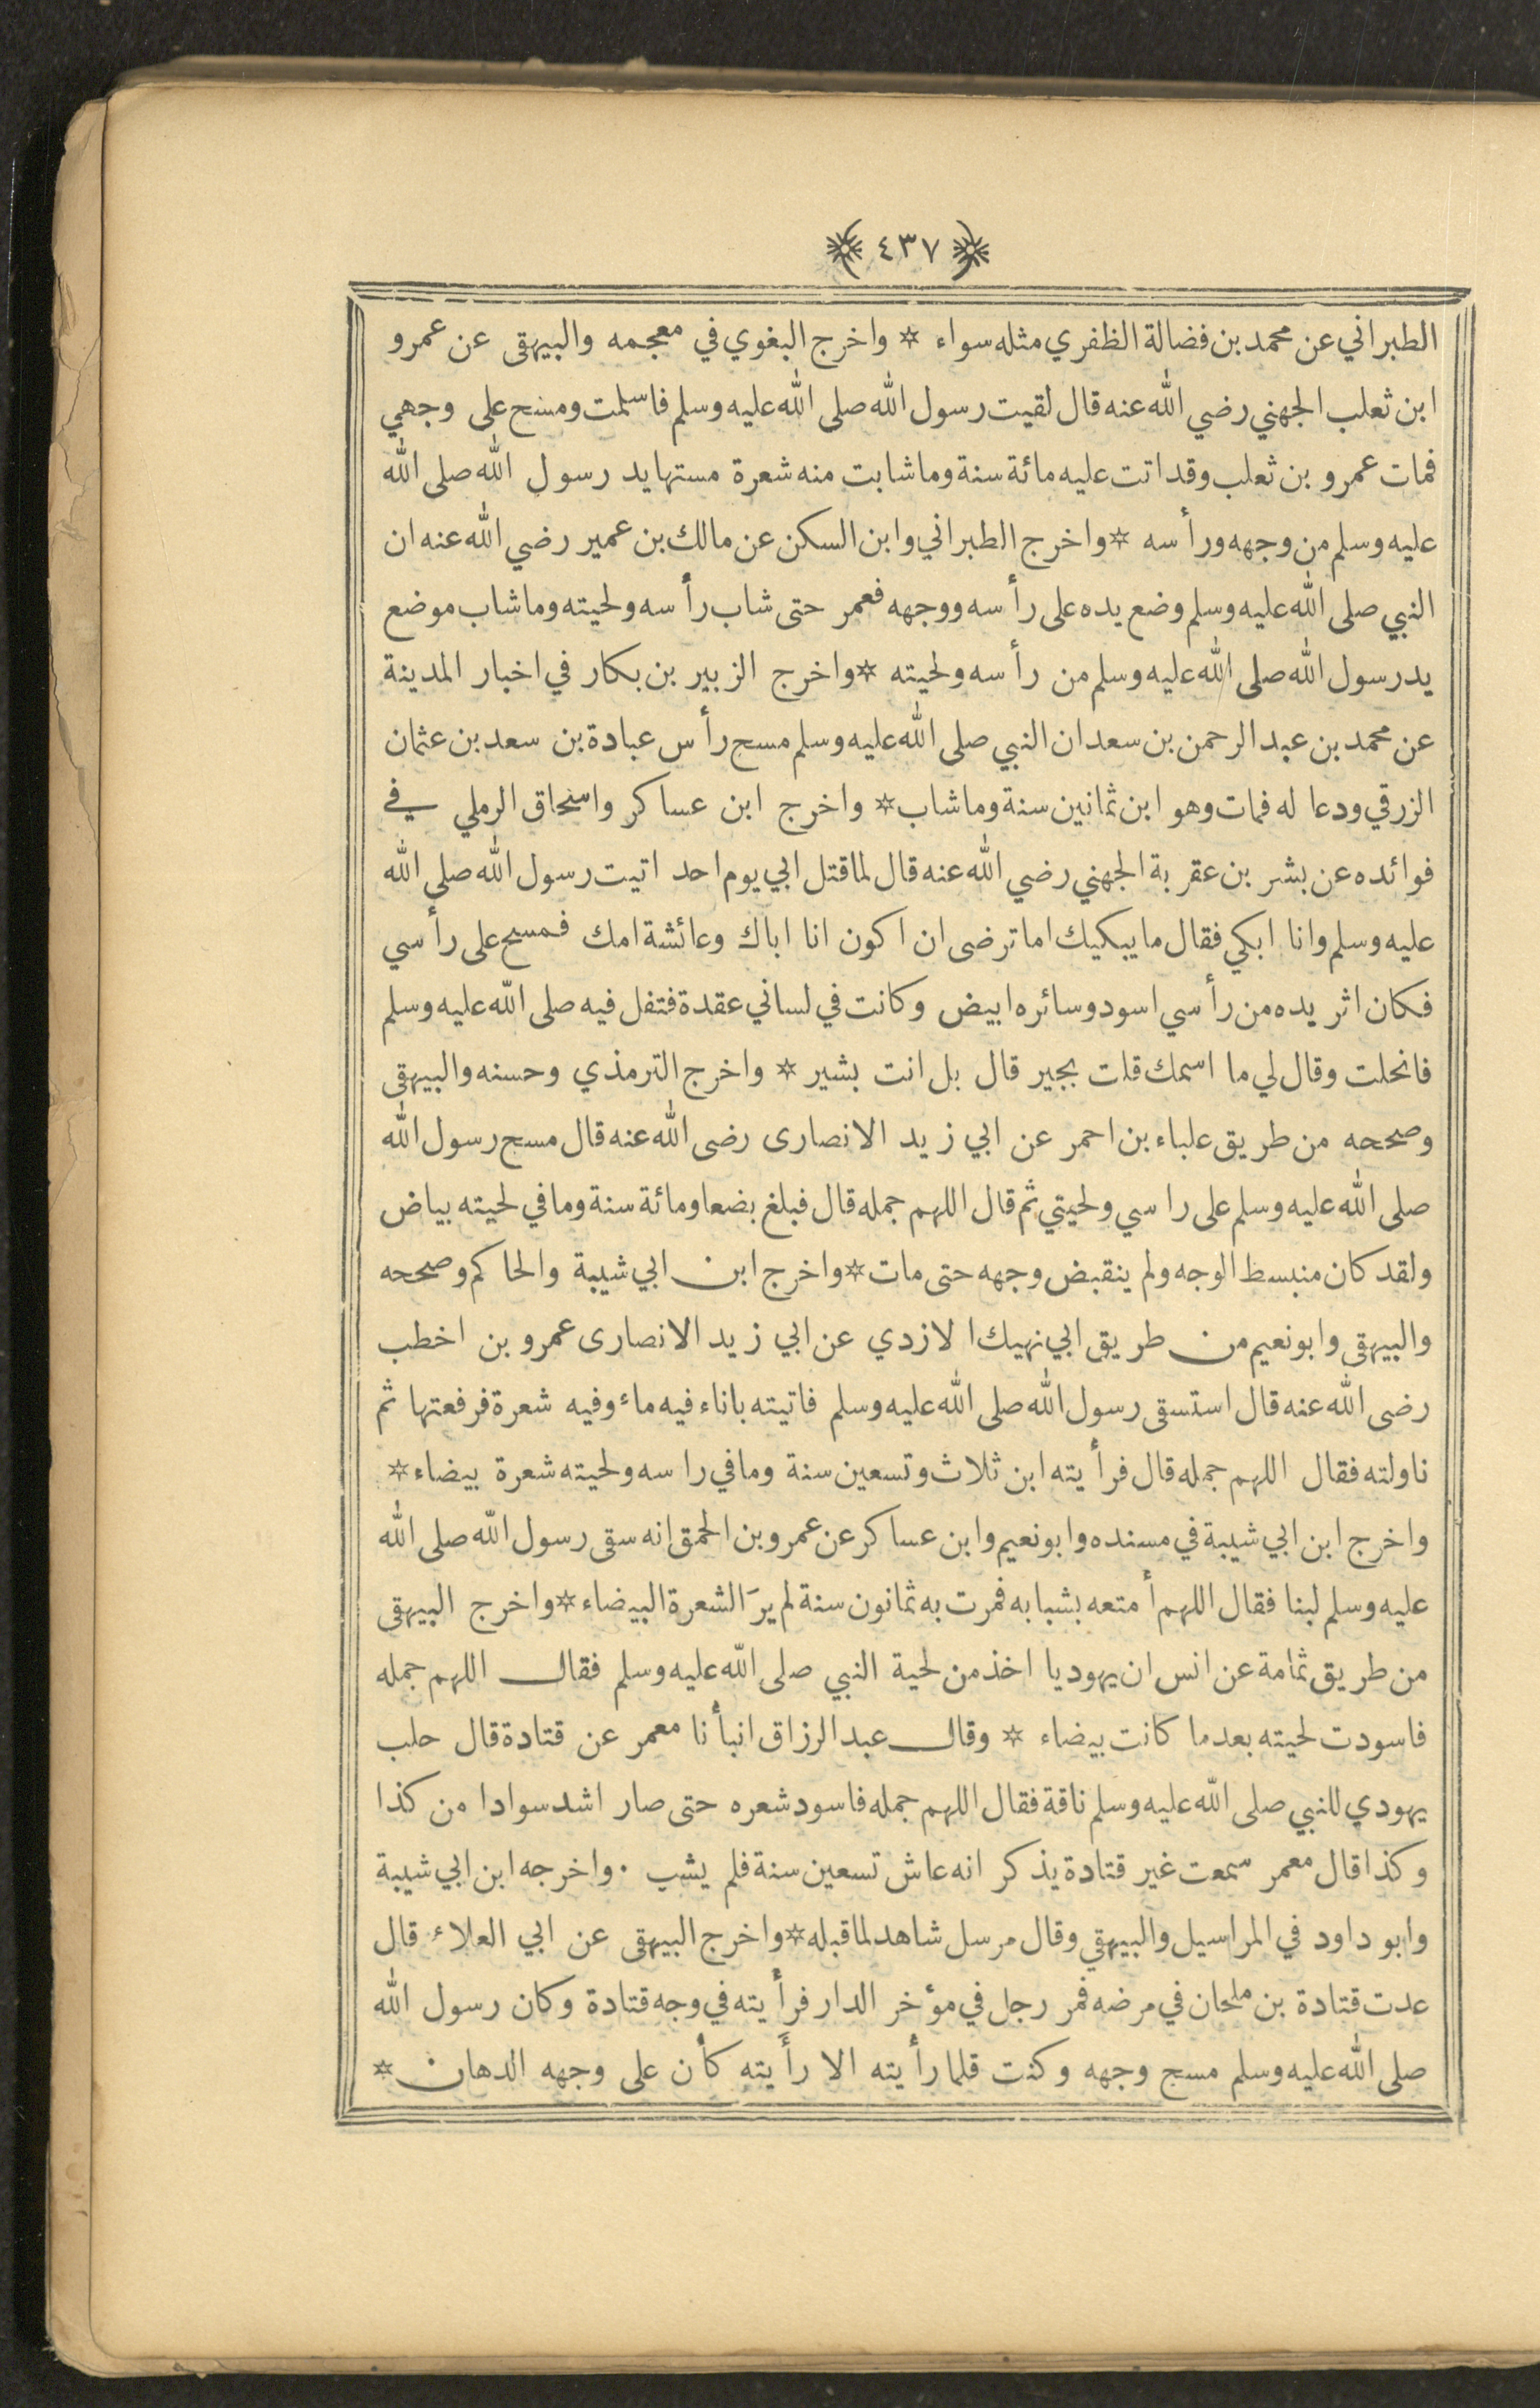 ٤٣٧
الطبراني عن محمد بن فضالة الظفري مثله سواء * واخرج البغوي في معجمه والبيهقى عن عمرو
ابن ثعلب الجهني رضي الله عنه قال لقيت رسول الله صلى الله عليه وسلم فاسلمت ومسح على وجهي
فمات عمرو بن ثعلب وقد اتت عليه مائة سنة وما شابت منه شعرة مستها يد رسول الله صلى الله
عليه وسلم من وجهه ورأسه * واخرج الطبراني وابن السكن عن مالك بن عمير رضي الله عنه ان
النبي صلى الله عليه وسلم وضع يده على رأسه ووجهه فعمر حتى شاب رأسه ولحيته وما شاب موضع
يد رسول الله صلى الله عليه وسلم من رأسه ولحيته * واخرج الزبير بن بكار في اخبار المدينة
عن محمد بن عبد الرحمن بن سعد ان النبي صلى الله عليه وسلم مسح رأس عبادة بن سعد بن عثمان
الزرقي ودعا له فمات وهو ابن ثمانين سنة وما شاب * واخرج ابن عساكر واسحاق الرملي في
فوائده عن بشر بن عقربة الجهني رضي الله عنه قال لما قتل ابي يوم احد اتيت رسول الله صلى الله
عليه وسلم وانا ابكي فقال ما يبكيك اما ترضى ان اكون انا اباك وعائشة امك فمسح على رأسي
فكان اثر يده من رأسي اسود وسائره ابيض وكانت في لساني عقدة فتفل فيه صلى الله عليه وسلم
فانحلت وقال لي ما اسمك قلت بجير قال بل انت بشير * واخرج الترمذي وحسنه والبيهقى
وصححه من طريق علباء بن احمر عن ابي زيد الانصارى رضى الله عنه قال مسح رسول الله
صلى الله عليه وسلم على راسي ولحيتي ثم قال اللهم جمله قال فبلغ بضعا ومائة سنة وما في لحيته بياض
ولقد كان منبسط الوجه ولم ينقبض وجهه حتى مات * واخرج ابن ابي شيبة والحاكم وصححه
والبيهقى وابو نعيم من طريق ابي نهيك الازدي عن ابي زيد الانصارى عمرو بن اخطب
رضى الله عنه قال استسقى رسول الله صلى الله عليه وسلم فاتيته باناء فيه ماء وفيه شعرة فرفعتها ثم
ناولته فقال اللهم جمله قال فرأيته ابن ثلاث وتسعين سنة وما في راسه ولحيته شعرة بيضاء *
واخرج ابن ابي شيبة في مسنده وابو نعيم وابن عساكر عن عمرو بن الحمق انه سقى رسول الله صلى الله
عليه وسلم لبنا فقال اللهم أمتعه بشبابه فمرت به ثمانون سنة لم يرَ الشعرة البيضاء * واخرج البيهقى
من طريق ثمامة عن انس ان يهوديا اخذ من لحية النبي صلى الله عليه وسلم فقال اللهم جمله
فاسودت لحيته بعد ما كانت بيضاء * وقال عبد الرزاق انبأنا معمر عن قتادة قال حلب
يهودي للنبي صلى الله عليه وسلم ناقة فقال اللهم جمله فاسود شعره حتى صار اشد سوادا من كذا
وكذا قال معمر سمعت غير قتادة يذكر انه عاش تسعين سنة فلم يشب . واخرجه ابن ابي شيبة
وابو داود في المراسيل والبيهقي وقال مرسل شاهد لما قبله * واخرج البيهقى عن ابي العلاء قال
عدت قتادة بن ملحان في مرضه فمر رجل في مؤخر الدار فرأيته في وجه قتادة وكان رسول الله
صلى الله عليه وسلم مسح وجهه وكنت قلما رأيته الا رأَيته كأن على وجهه الدهان *